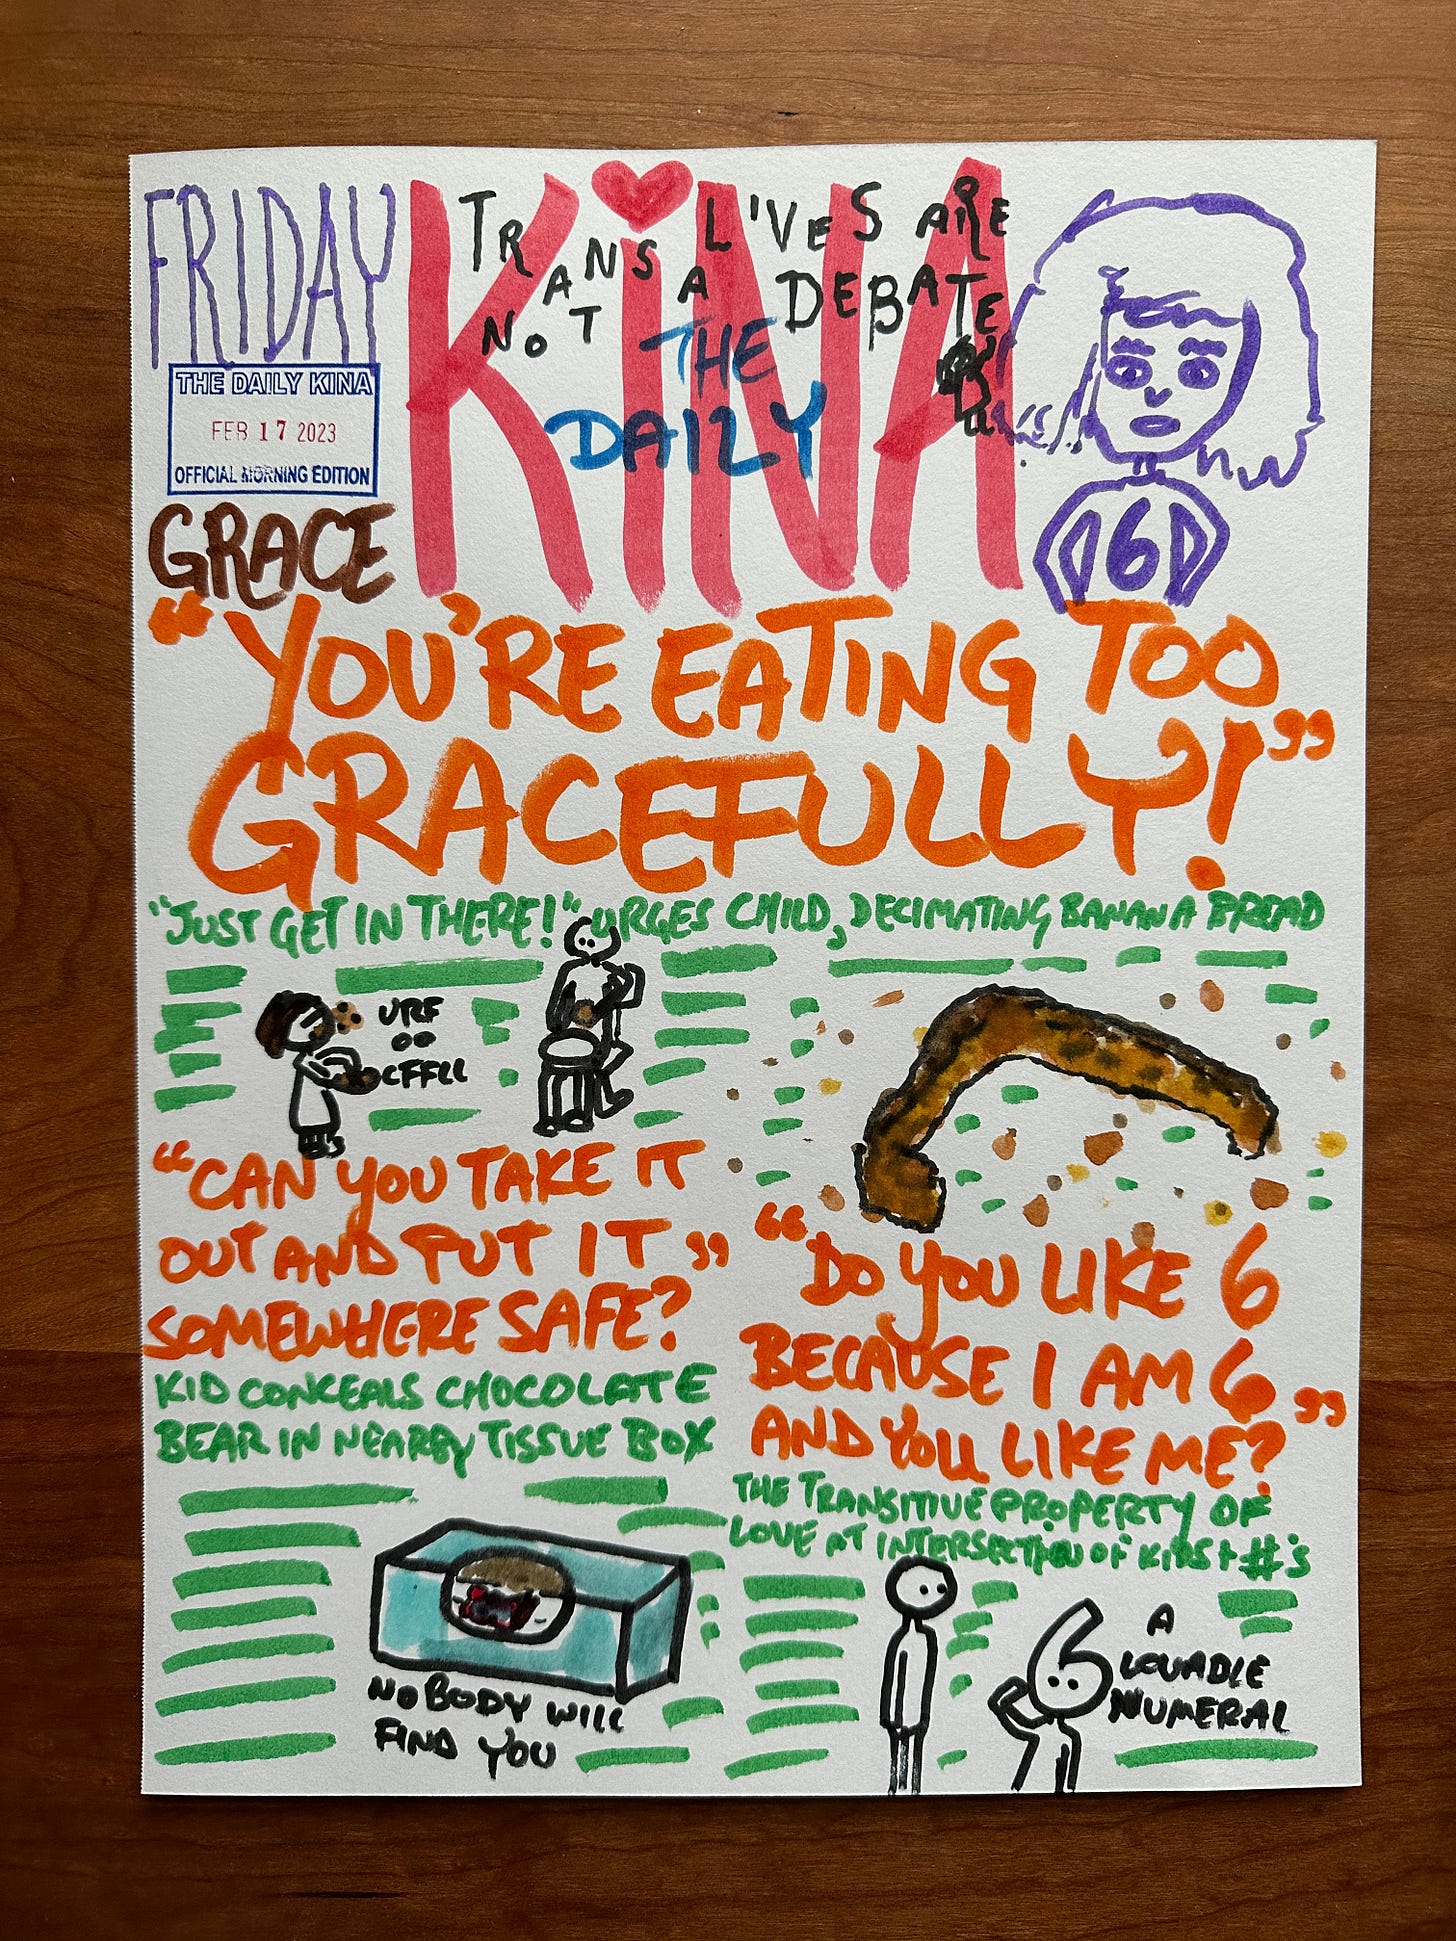 FRIDAY
THE DAILY KINA
FEB 17 2023
OFFICIAL MORNING EDITION
GRACE
KiNA
TRANS LIVES ARE
NOT A DEBATE
THE
DAILY
6
"YOU'RE EATING TOO
GRACEFULLY!"
"JUST GET IN THERE!" URGES CHILD, DECIMATING BANANA BREAD
URF
OO
"CAN YOU TAKE IT
OUT AND PUT IT"
SOMEWHERE SAFE?
KID CONCEALS CHOCOLATE
BEAR IN NEARBY TISSUE BOX
NOBODY WILL
FIND YOU
"DO YOU LIKE 6
BECAUSE I AM 6"
AND YOU LIKE ME?
THE TRANSITIVE PROPERTY OF
LOVE AT INTERSECTION OF KIDS + #'S
6
A
LOVABLE
NUMERAL